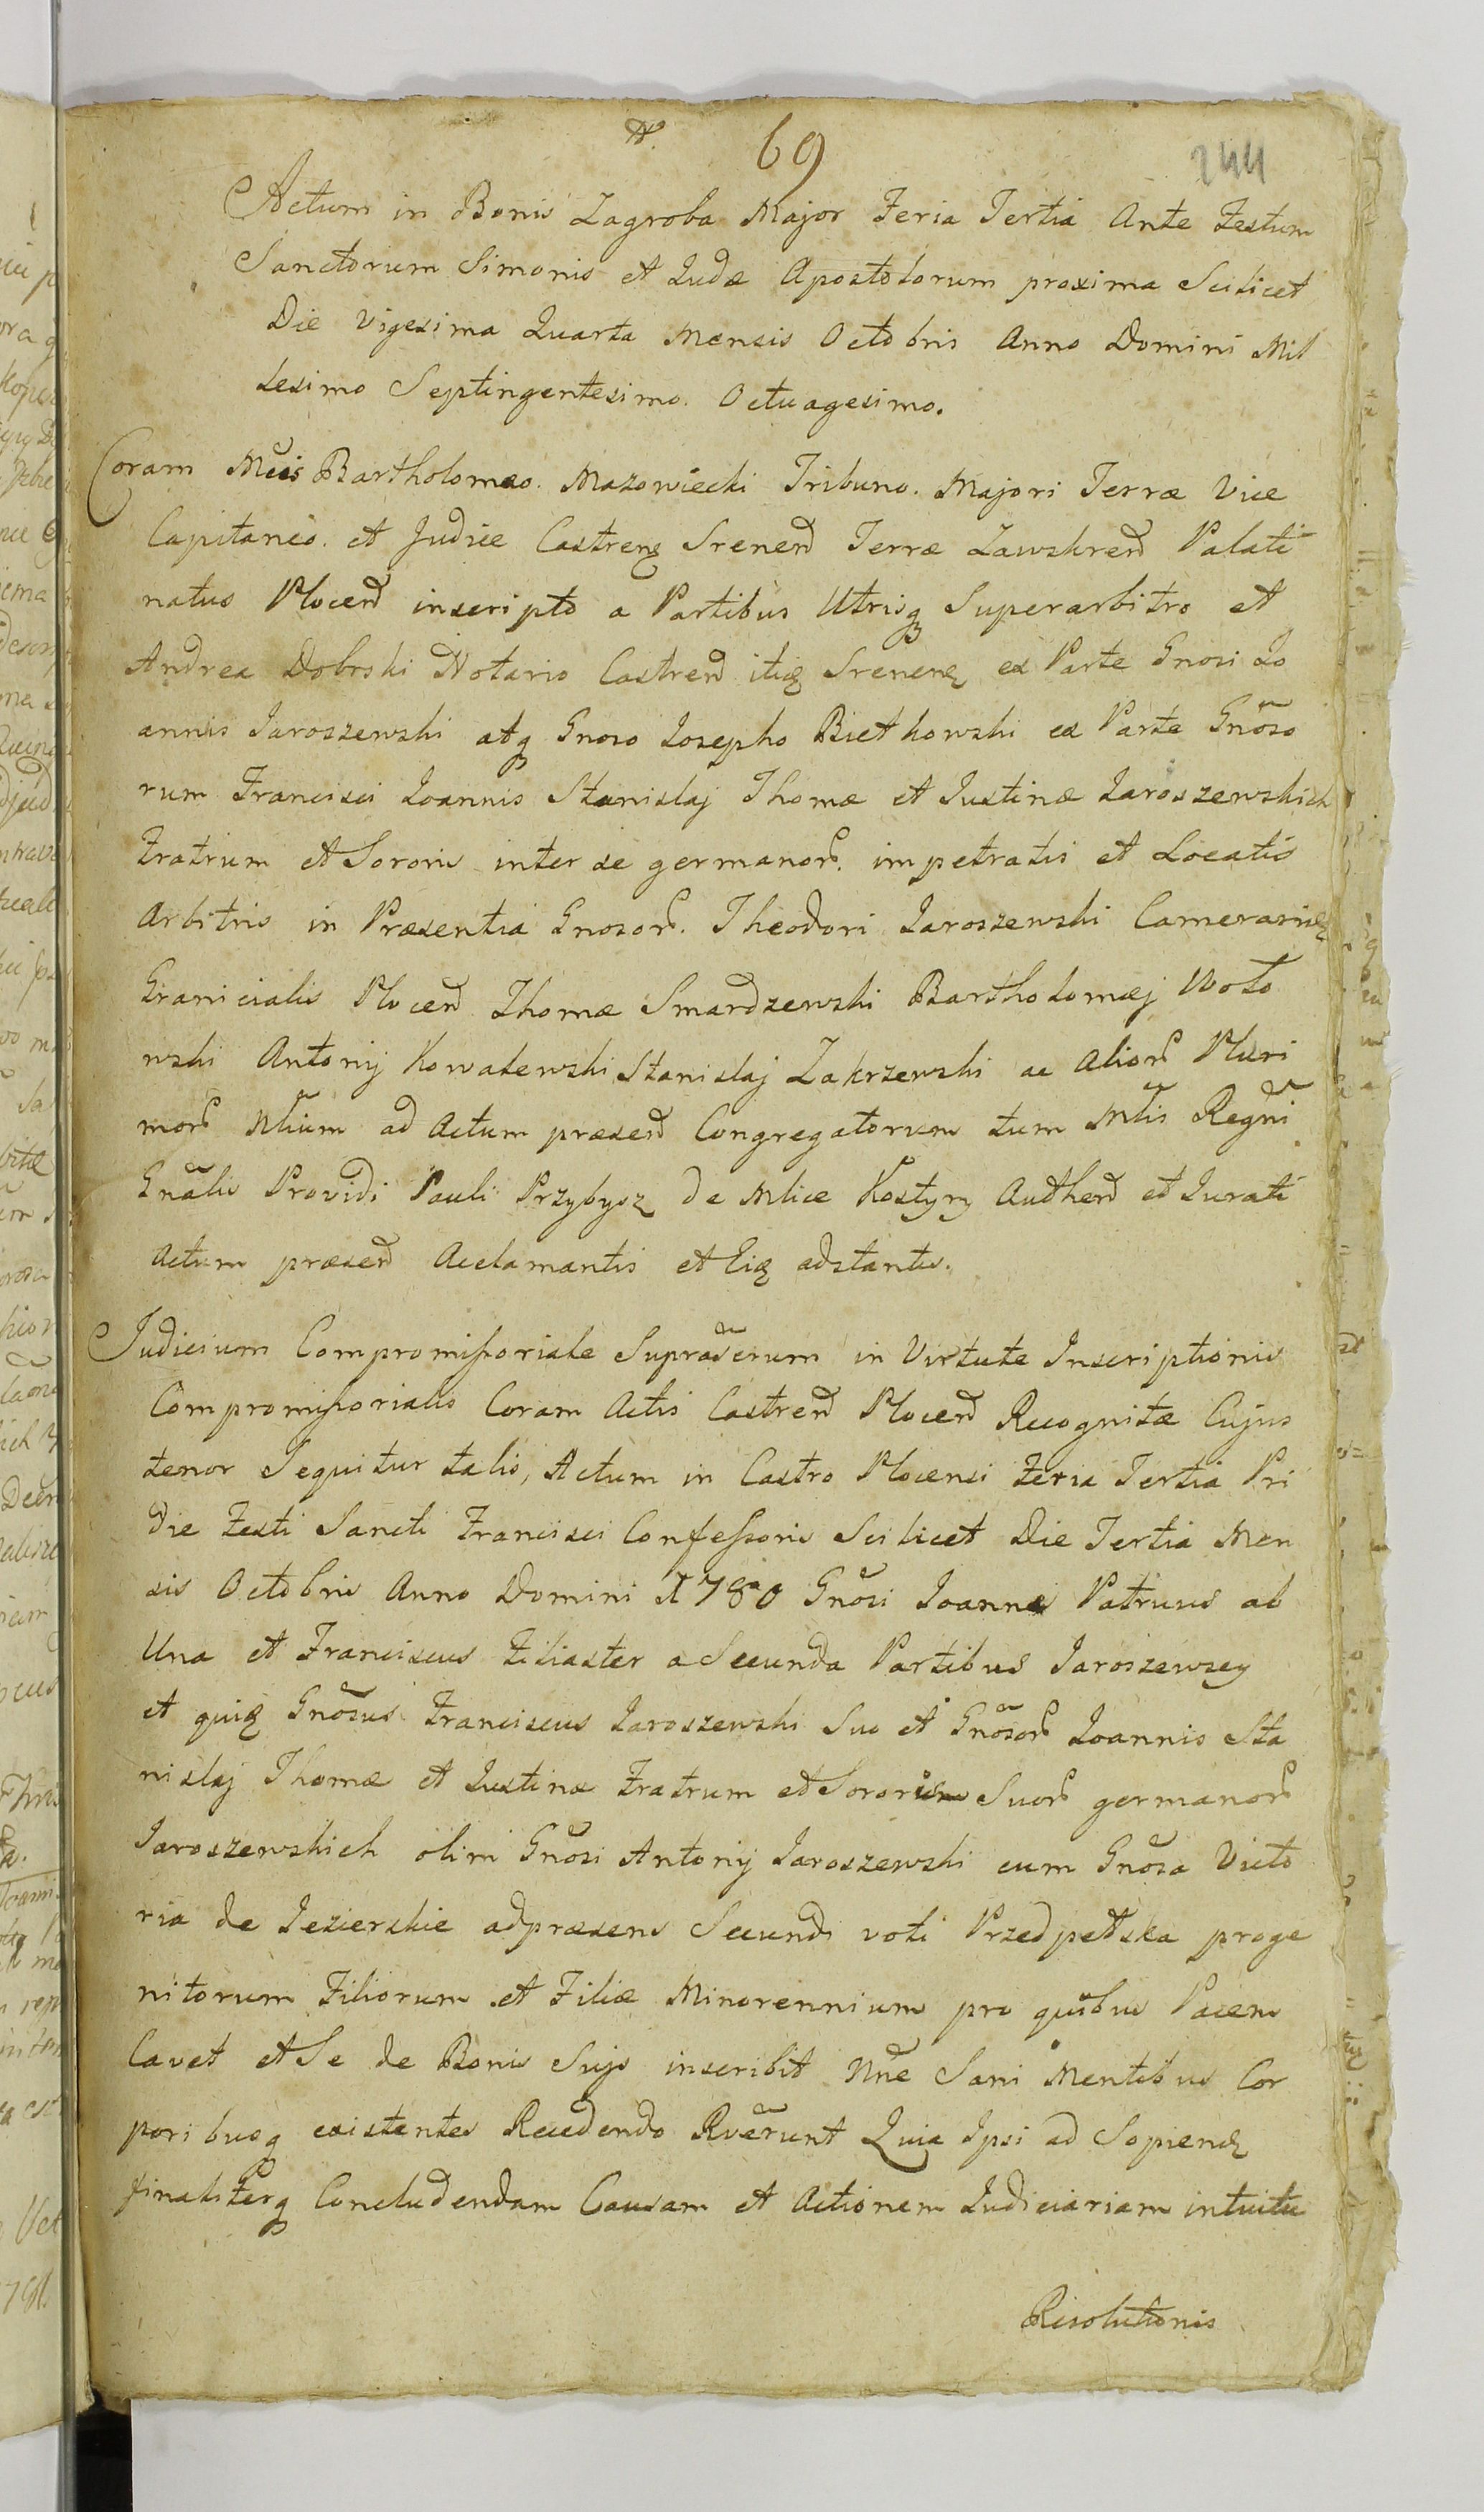 N. 69 244
Actum in Bonis Zagroba Major Feria Tertia Ante Festum
Sanctorum Simonis et Judæ Apostolorum proxima Scilicet
Die Vigesima Quarta Mensis Octobris Anno Domini Mil
lesimo Septingentesimo. Octuagesimo.
Coram Mcis Bartholomæo. Mazowiecki Tribuno. Majori Terræ Vice
Capitaneo. et Judice Castrenȩ Srenen Terræ Zawskren Palati
natus Plocen inscripto a Partibus Utrisq Superarbitro et
Andrea Dobrski Notario Castren itiȩ Srenenȩ ex Parte Gnosi Jo
annis Jaroszewski atq Gnoso Josepho Bietkowski ex Parte Gnõso
rum Francisci Joannis Stanislaj Thomæ et Justinæ Jaroszewskich
Fratrum et Sororis inter se germanor. impetratis et Locatis
Arbitris in Præsentia Gnosor. Theodori Jaroszewski Camerariȩ
Granicialis Plocen Thomæ Smardzewski Bartholomæj Woło
wski Antonij Kowalewski Stanislaj Zakrzewski ac alior Pluri
mor Nlium ad Actum præsen Congregatorum tum Mlis Regni
Gnãlis Providi Pauli Przybysz de Mlice Kostry Authen et Jurati
Actum præsen Acclamantis et Eiȩ adstantis.
Judicium Compromissoriale Supraderum in Virtute Inscriptionis
Compromissorialis Coram Actis Castren Plocen Recognitæ Cujus
tenor Sequitur talis, Actum in Castro Plocensi Feria Tertia Pri
die Festi Sancti Francisci Confessoris Scilicet Die Tertia Men
sis Octobris Anno Domini 1780 Gnõsi Joannes Patruus ab
Una et Franciscus Filiaster a Secunda Partibus Jaroszewscy
et quiȩ Gnõsus Franciscus Jaroszewski Suo et Gnõsor Joannis Sta
nislaj Thomæ et Justinæ Fratrum et Sororum Suor germanor
Jaroszewskich olim Gnõsi Antonij Jaroszewski cum Gnõsa Victo
ria de Jezierskie adpræsens Secundi voti Przedpełska proge
nitorum Filiorum et Filiæ Minorennium pro quibus Pacem
Cavet et Se de Bonis Sujs inscribit Nne Sani Mentibus Cor
poribusq existentes Recedendo Rvẽrunt Quia Ipsi ad Sopienȩ
finaliterq Concludendam Causam et Actionem Judiciariam intuitu
Resolutionis